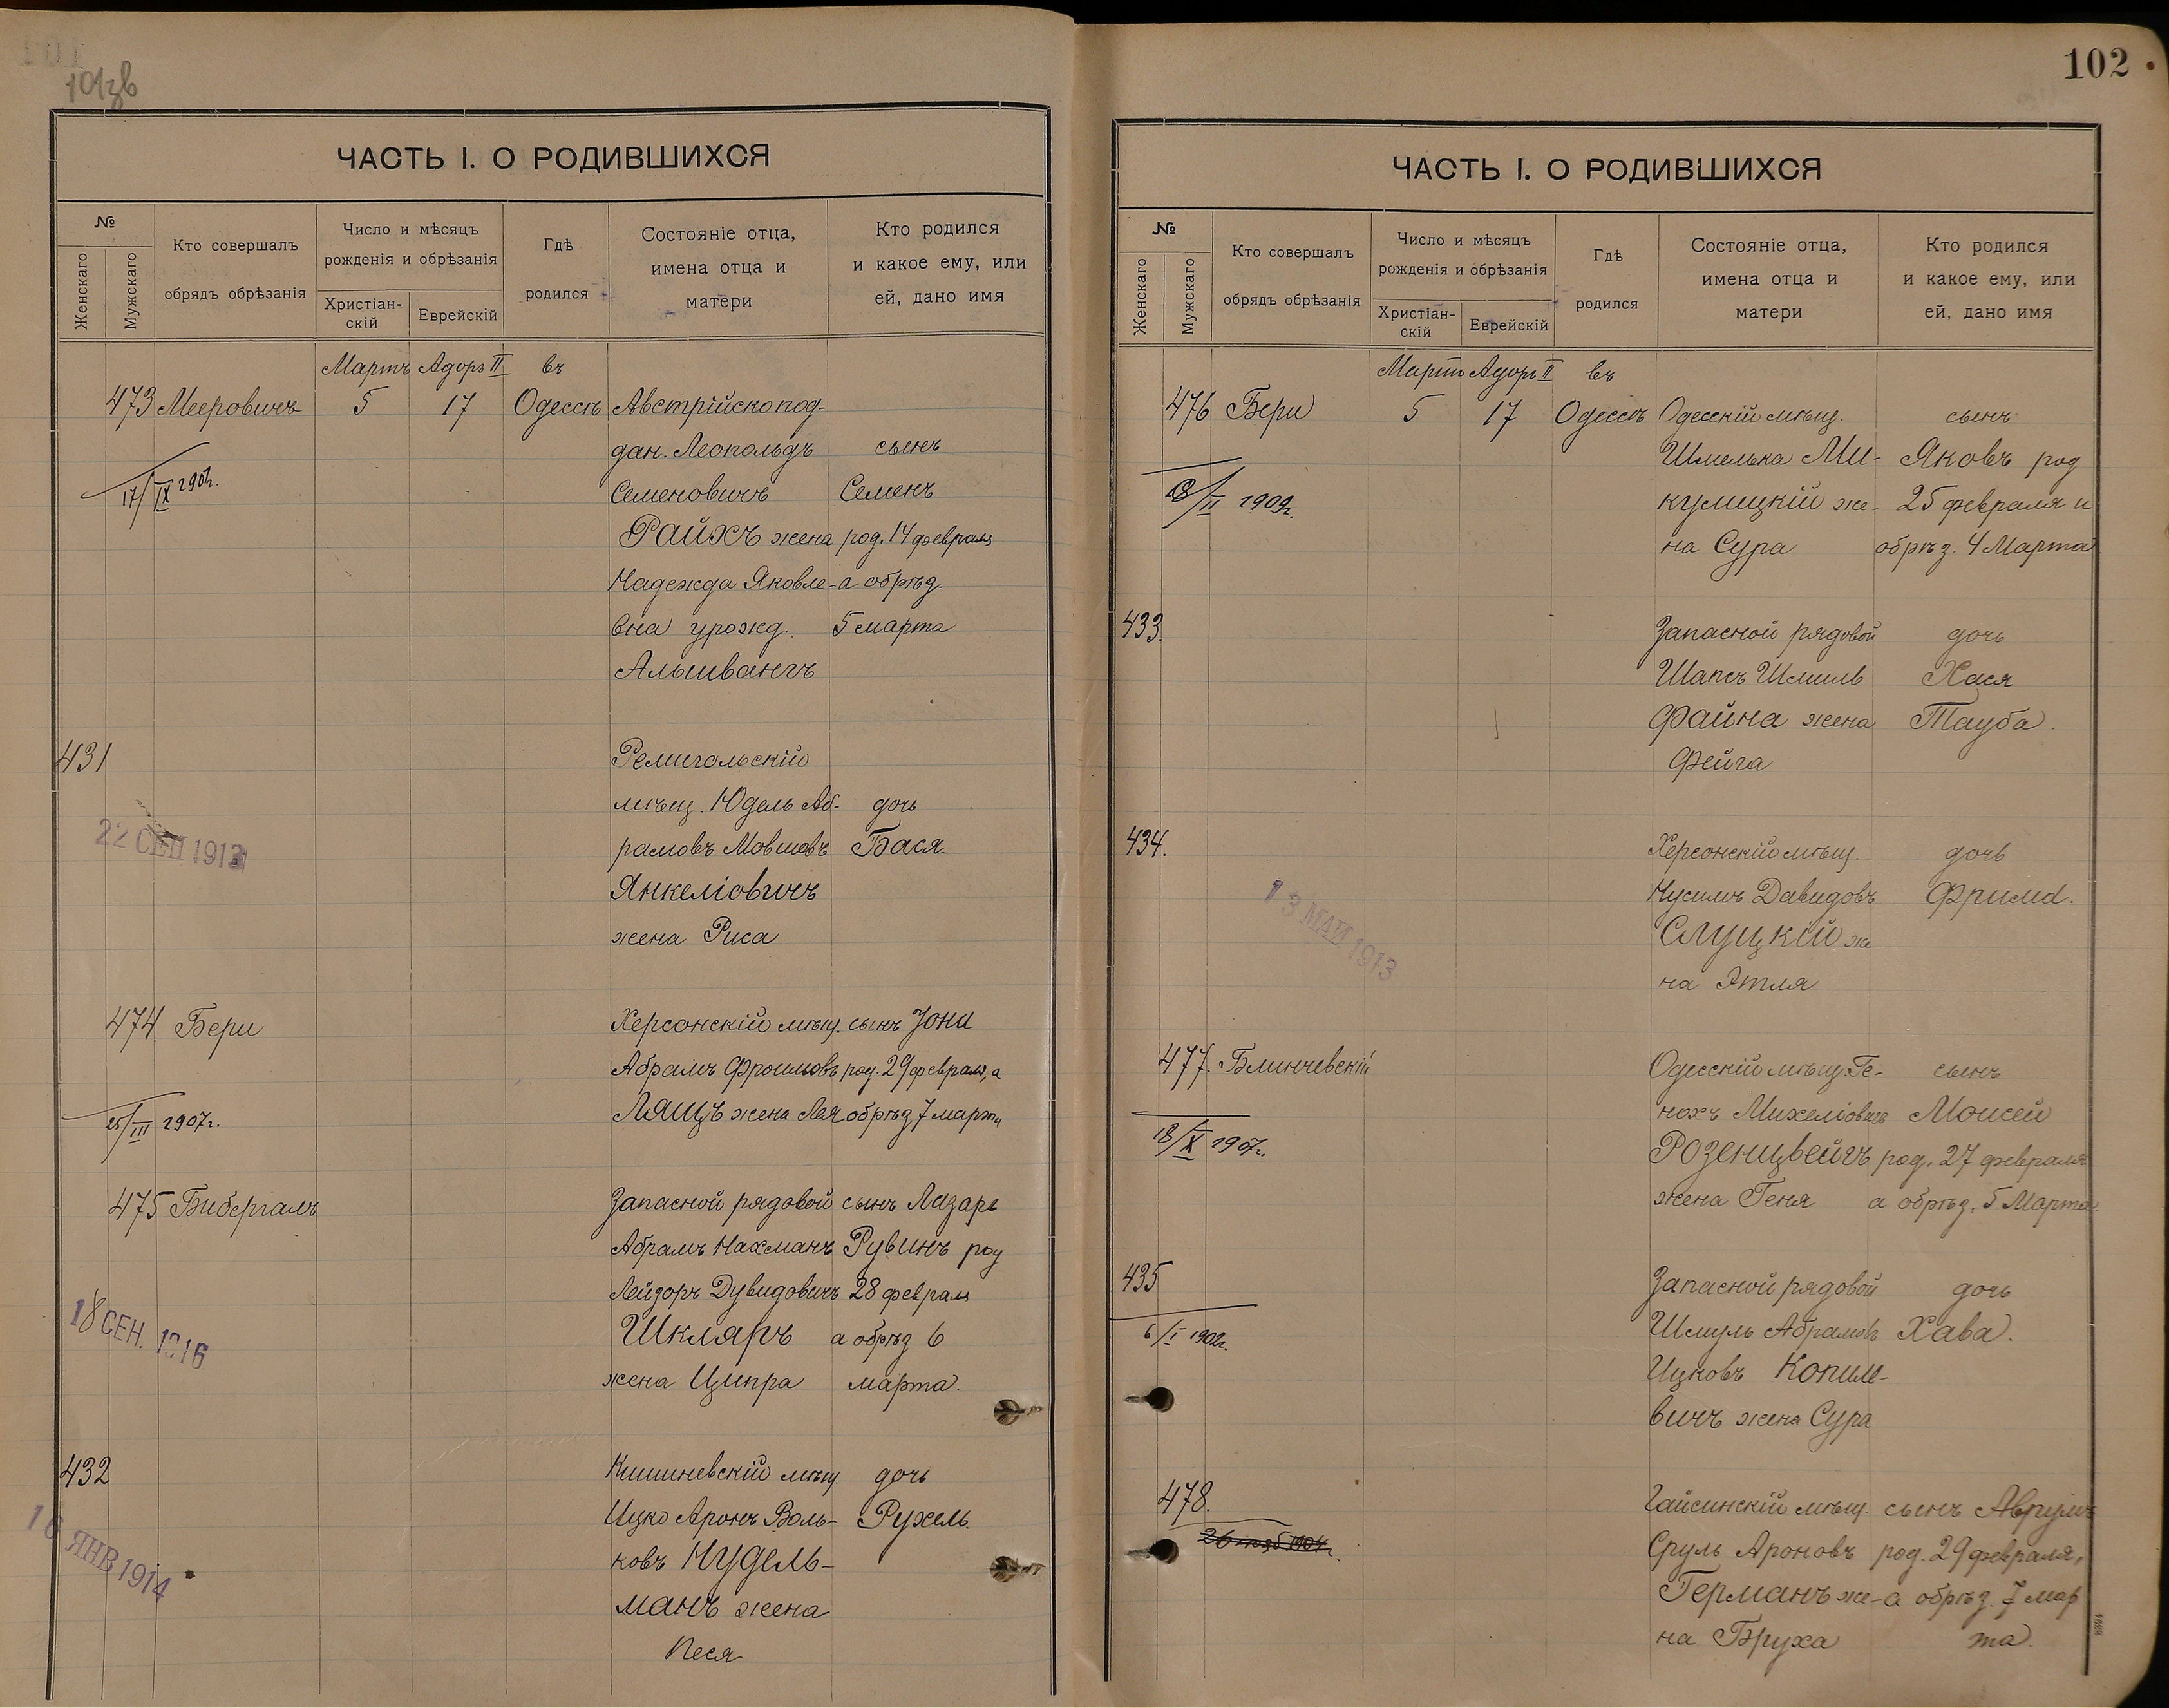 101 зв
ЧАСТЬ I. О РОДИВШИХСЯ
№
Женскаго
Мужскаго
Кто совершалъ
обрядъ обрѣзанія
Число и мѣсяцъ
рожденія и обрѣзанія
Христіан-
скій
Еврейскій
Гдѣ
родился
Состояніе отца,
имена отца и
матери
Кто родился
и какое ему, или
ей, дано имя
Мартъ Адоръ II въ
473 Мееровичъ 5 17 Одессѣ Австрійскопод-
дан. Леопольдъ сынъ
17/IX 190
Семеновичъ Семенъ
Райхъ жена род. 14 февраля
Надежда Яковле- а обрѣз.
вна урожд. 5 марта
Альшвангъ
431 Ремигольскій
мѣщ. Юдель Аб- дочь
22 СЕН 1912
рамовъ Мовшовъ Бася.
Янкеліовичъ
жена Риса
474 Бери Херсонскій мѣщ. сынъ Іона
Абрамъ Фроимовъ род. 29 февраля, а
25/III 1907г.
Лящъ жена Лея обрѣз 7 марта
475 Бибергалъ Запасной рядовой сынъ Лазарь
Абрамъ Нахманъ Рувинъ род
Лейзоръ Дувидовичъ 28 февраля
18 СЕН. 1916
Шкляръ а обрѣз 6
жена Ципра марта.
432 Кишиневскій мѣщ. дочь
Ицко Аронъ Воль- Рухель.
16 ЯНВ 1914
ковъ Нудель-
манъ жена
Песя
102
ЧАСТЬ I. О РОДИВШИХСЯ
№
Женскаго
Мужскаго
Кто совершалъ
обрядъ обрѣзанія
Число и мѣсяцъ
рожденія и обрѣзанія
Христіан-
скій
Еврейскій
Гдѣ
родился
Состояніе отца,
имена отца и
матери
Кто родился
и какое ему, или
ей, дано имя
Мартъ Адоръ II въ
476 Бери 5 17 Одессѣ Одесскій мѣщ. сынъ
Шмелька Ми- Яковъ род
18/II 1909г.
кулицкій же- 25 февраля и
на Сура обрѣз. 4 Марта
433. Запасной рядовой дочь
Шапсъ Шмиль Хася
Файна жена Тауба.
Фейга
434. Херсонскій мѣщ. дочь
13 МАЙ 1913
Нусимъ Давидовъ Фрима.
Слуцкій же
на Этля
477. Блинчевскій Одесскій мѣщ. Ге- сынъ
нохъ Михеліовичъ Моисей
18/X 1907г.
Розенцвейгъ род. 27 февраля
жена Геня а обрѣз. 5 Марта
435 Запасной рядовой дочь
6/I 1902г.
Шмуль Абрамовъ Хава.
Ицковъ Копиле-
вичъ жена Сура
478. Гайсинскій мѣщ. сынъ Аврумъ
Сруль Ароновъ род. 29 февраля,
Германъ же- а обрѣз. 7 мар
на Бруха та.